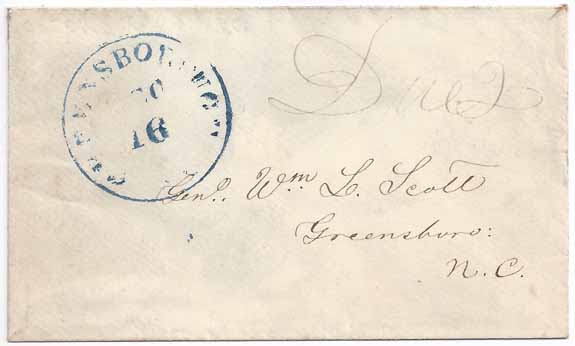 GREENSBOROUGH
16
Due 2
Genl. Wm L. Scott
Greensboro:
N. C.